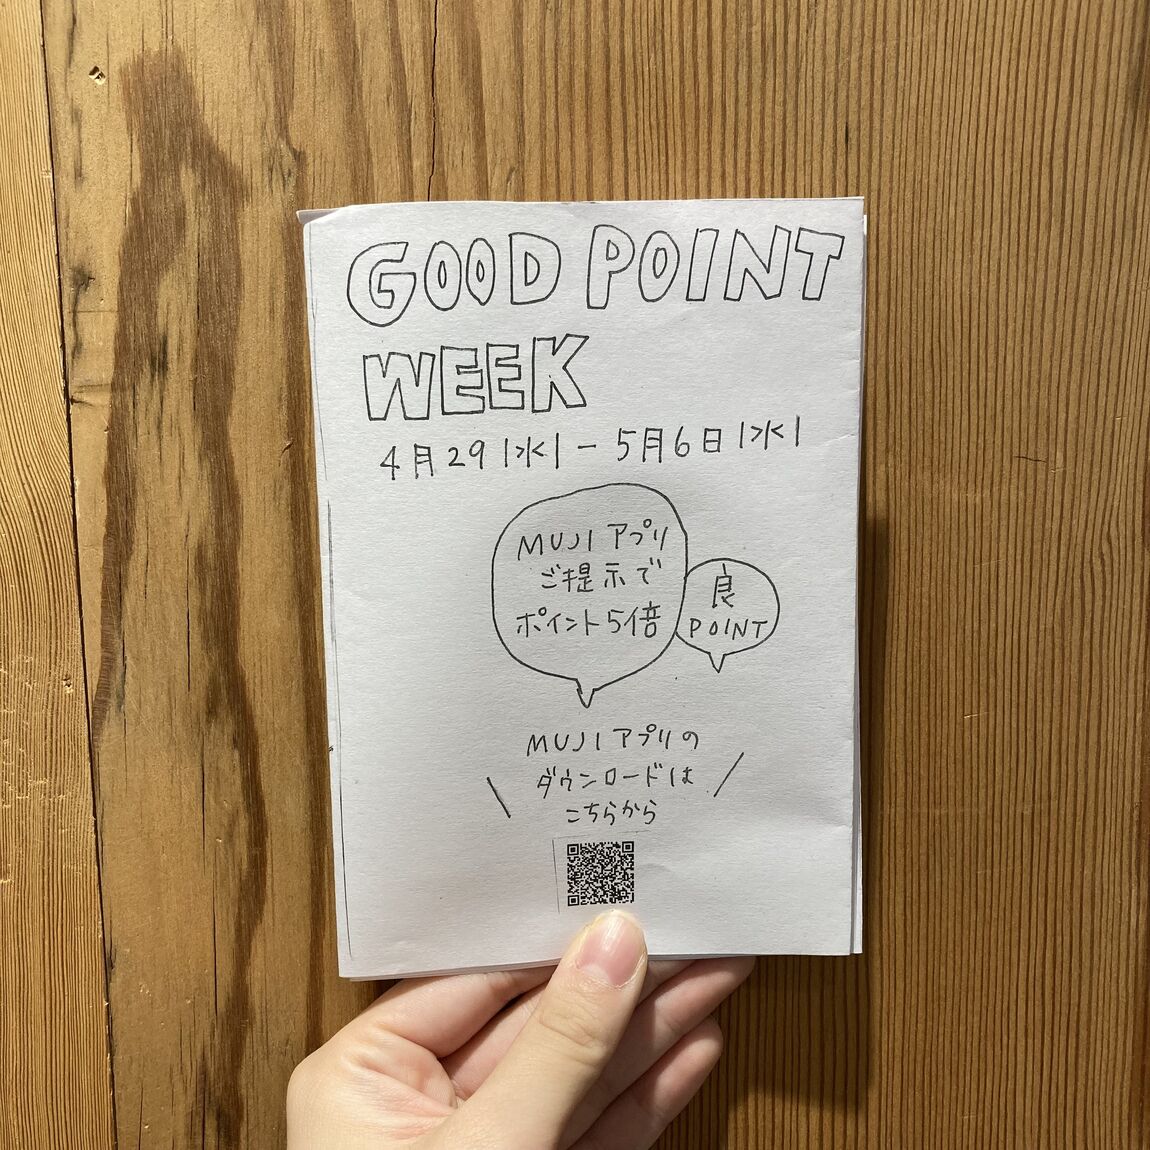 GOOD POINT
WEEK
4月29|水| - 5月6日|水|
MUJI アプリ
ご提示で
ポイント5倍
良
POINT
MUJI アプリの
\ ダウンロードは /
こちらから